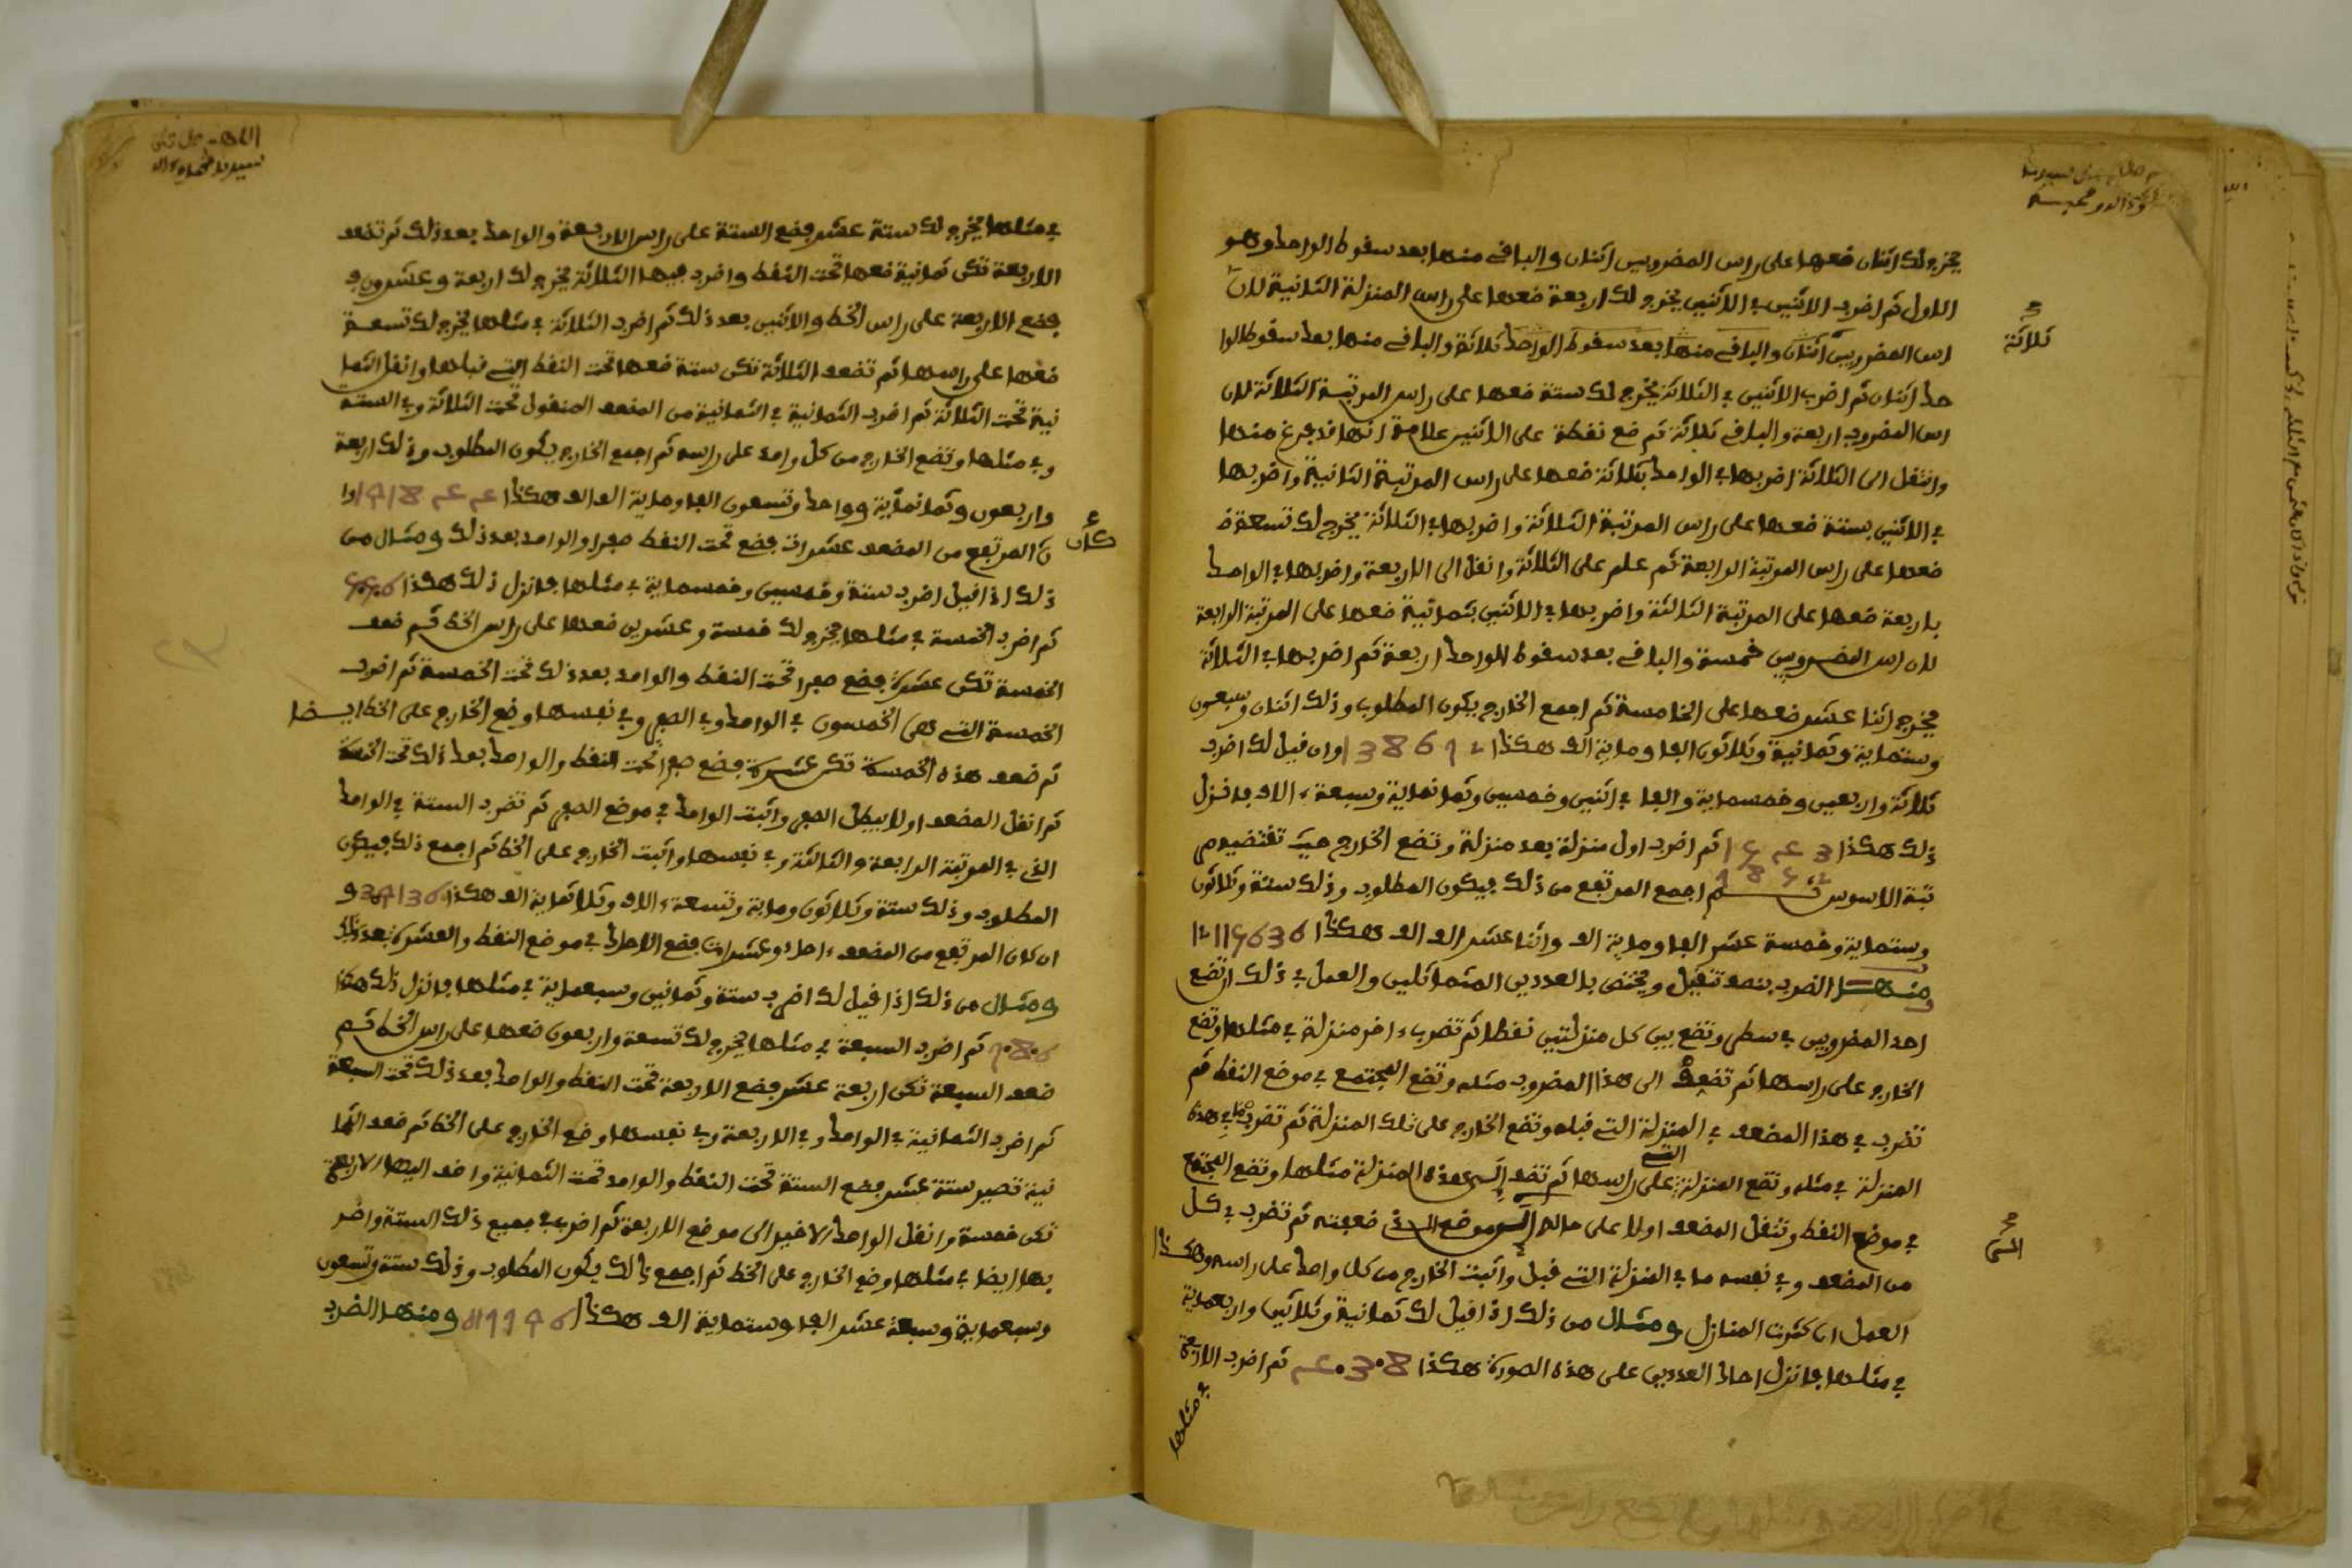 يخرج لك اثنان فعها على راس المضروبين اثنان والباقي منها بعد سقوط الواحد وهو
الاول ثم اضرب الاثنين في الاثنين يخرج لك اربعة ضعها على راس المنزلة الثانية لان
اس المضروبين اثنان والباقي منها بعد سقوط الواحد ثلاثة والباقي منها بعد سقوط الوا
ثلاثة
حد اثنان ثم اضرب الاثنين في الثلاثة يخرج لك ستة ضعها على راس المرتبة الثلاثة لان
اس المضروب اربعة والباقي ثلاثة ثم ضع نقطة على الاثنين علامة انها قد فرغ منها
وانتقل الى الثلاثة اضربها في الواحد بثلاثة ضعها على راس المرتبة الثانية واضربها
في الاثنين بستة ضعها على راس المرتبة الثلاثة واضربها في الثلاثة يخرج لك تسعة ف
ضعها على راس المرتبة الرابعة ثم علم على الثلاثة وانقل الى الاربعة واضربها في الواحد
باربعة ضعها على المرتبة الثالثة واضربها في الاثنين بثمانية ضعها على المرتبة الرابعة
لان اس المضروبين خمسة والباقي بعد سقوط الواحد اربعة ثم اضربها في الثلاثة
يخرج اثنا عشر ضعها على الخامسة ثم اجمع الخارج يكون المطلوب وذلك اثنان وسبعون
وستماية وثمانية وثلاثون الفا وماية الف هكذا 138672 وان قيل لك اضرب
ثلاثة واربعين وخمسماية والفا في اثنين وخمسين وثمانماية وسبعة ءالاف فانزل
ذلك هكذا 1543 ثم اضرب اول منزلة بعد منزلة وتضع الخارج حيث تقتضيه مر
7852
تبة الاسوس ثم اجمع المرتفع من ذلك فيكون المطلوب وذلك ستة وثلاثون
وستماية وخمسة عشر الفا وماية الف واثنا عشر الف الف هكذا 12115636
ومنها الضرب بنصف تنقيل ويختص بالعددين المتماثلين والعمل في ذلك ان تضع
احد المضروبين في سطر وتضع بين كل منزلتين نقطا ثم تضرب ءاخر منزلة في مثلها وتضع
الخارج على راسها ثم تضعف الى هذا المضروب مثله وتضع المجتمع في موضع النقط ثم
تضرب في هذا المضعف في المنزلة التي قبله وتضع الخارج على تلك المنزلة ثم تضرب ما في هذه
المنزلة في مثله وتضع المنزلة على راسها ثم تضف الى هذه المنزلة مثلها وتضع المجتمع
في موضع النقط وتنقل المضعف اولا على حاله الى موضع الذي ضعفته ثم تضرب في كل
الى
من المضعف وفي نفسه ما في المنزلة التي قبل واثبت الخارج من كل واحد على راسه وهكذا
العمل ان كثرت المنازل ومثال من ذلك اذا قيل لك ثمانية وثلاثين واربعماية
في مثلها فانزل احد العددين على هذه الصورة هكذا 8.3.4 ثم اضرب الاربعة
في مثلها
في مثلها يخرج لك ستة عشر فضع الستة على راس الاربعة والواحد بعد ذلك ثم تضعف
الاربعة تكن ثمانية ضعها تحت النقط واضرب فيها الثلاثة يخرج لك اربعة وعشرون ف
فضع الاربعة على راس الخط والاثنين بعد ذلك ثم اضرب الثلاثة في مثلها يخرج لك تسعة
ضعها على راسها ثم تضعف الثلاثة تكن ستة ضعها تحت النقط التي قبلها وانقل الثما
نية تحت الثلاثة ثم اضرب الثمانية في الثمانية من المضعف المنقول تحت الثلاثة وفي الستة
وفي مثلها وتضع الخارج من كل واحد على راسه ثم اجمع الخارج يكون المطلوب وذلك اربعة
واربعون وثمانماية وواحد وتسعون الفا وماية الف هكذا 191844 وا
كان
ن المرتفع من المضعف عشرات فضع تحت النقط صفرا والواحد بعد ذلك ومثال من
ذلك اذا قيل اضرب ستة وخمسين وخمسماية في مثلها فانزل ذلك هكذا 5.5.6
ثم اضرب الخمسة في مثلها يخرج لك خمسة وعشرين ضعها على راس الخط ثم ضعف
الخمسة تكن عشرة فضع صفرا تحت النقط والواحد بعد ذلك تحت الخمسة ثم اضرب
الخمسة التي هي الخمسون في الواحد وفي الصفر وفي نفسها وضع الخارج على الخط ايضا
ثم ضعف هذه الخمسة تكن عشرة فضع صفرا تحت النقط والواحد بعد ذلك تحت الخمسة
ثم انقل المضعف اولا يبطل الصفر واثبت الواحد في موضع الصفر ثم تضرب الستة في الواحد
الذي في المرتبة الرابعة والثالثة وفي نفسها واثبت الخارج على الخط ثم اجمع ذلك فيكون
المطلوب وذلك ستة وثلاثون وماية وتسعة ءالاف وثلاثماية الف هكذا 309136 و
ان كان المرتفع من المضعف ءاحاد وعشرات فضع الاحاد في موضع النقط والعشرة بعد ذلك
ومثال من ذلك اذا قيل لك اضرب ستة وثمانين وسبعماية في مثلها فانزل ذلك هكذا
7.8.6 ثم اضرب السبعة في مثلها يخرج لك تسعة واربعون ضعها على راس الخط ثم
ضعف السبعة تكن اربعة عشر فضع الاربعة تحت النقط والواحد بعد ذلك تحت السبعة
ثم اضرب الثمانية في الواحد وفي الاربعة وفي نفسها وضع الخارج على الخط ثم ضعف الثما
نية تصير ستة عشر فضع الستة تحت النقط والواحد تحت الثمانية واضف اليها الاربعة
تكن خمسة وانقل الواحد الاخير الى موضع الاربعة ثم اضرب في جميع ذلك الستة واضر
بها ايضا في مثلها وضع الخارج على الخط ثم اجمع ذلك يكون المطلوب وذلك ستة وتسعون
وسبعماية وسبعة عشر الفا وستماية الف هكذا 617796 ومنها الضرب